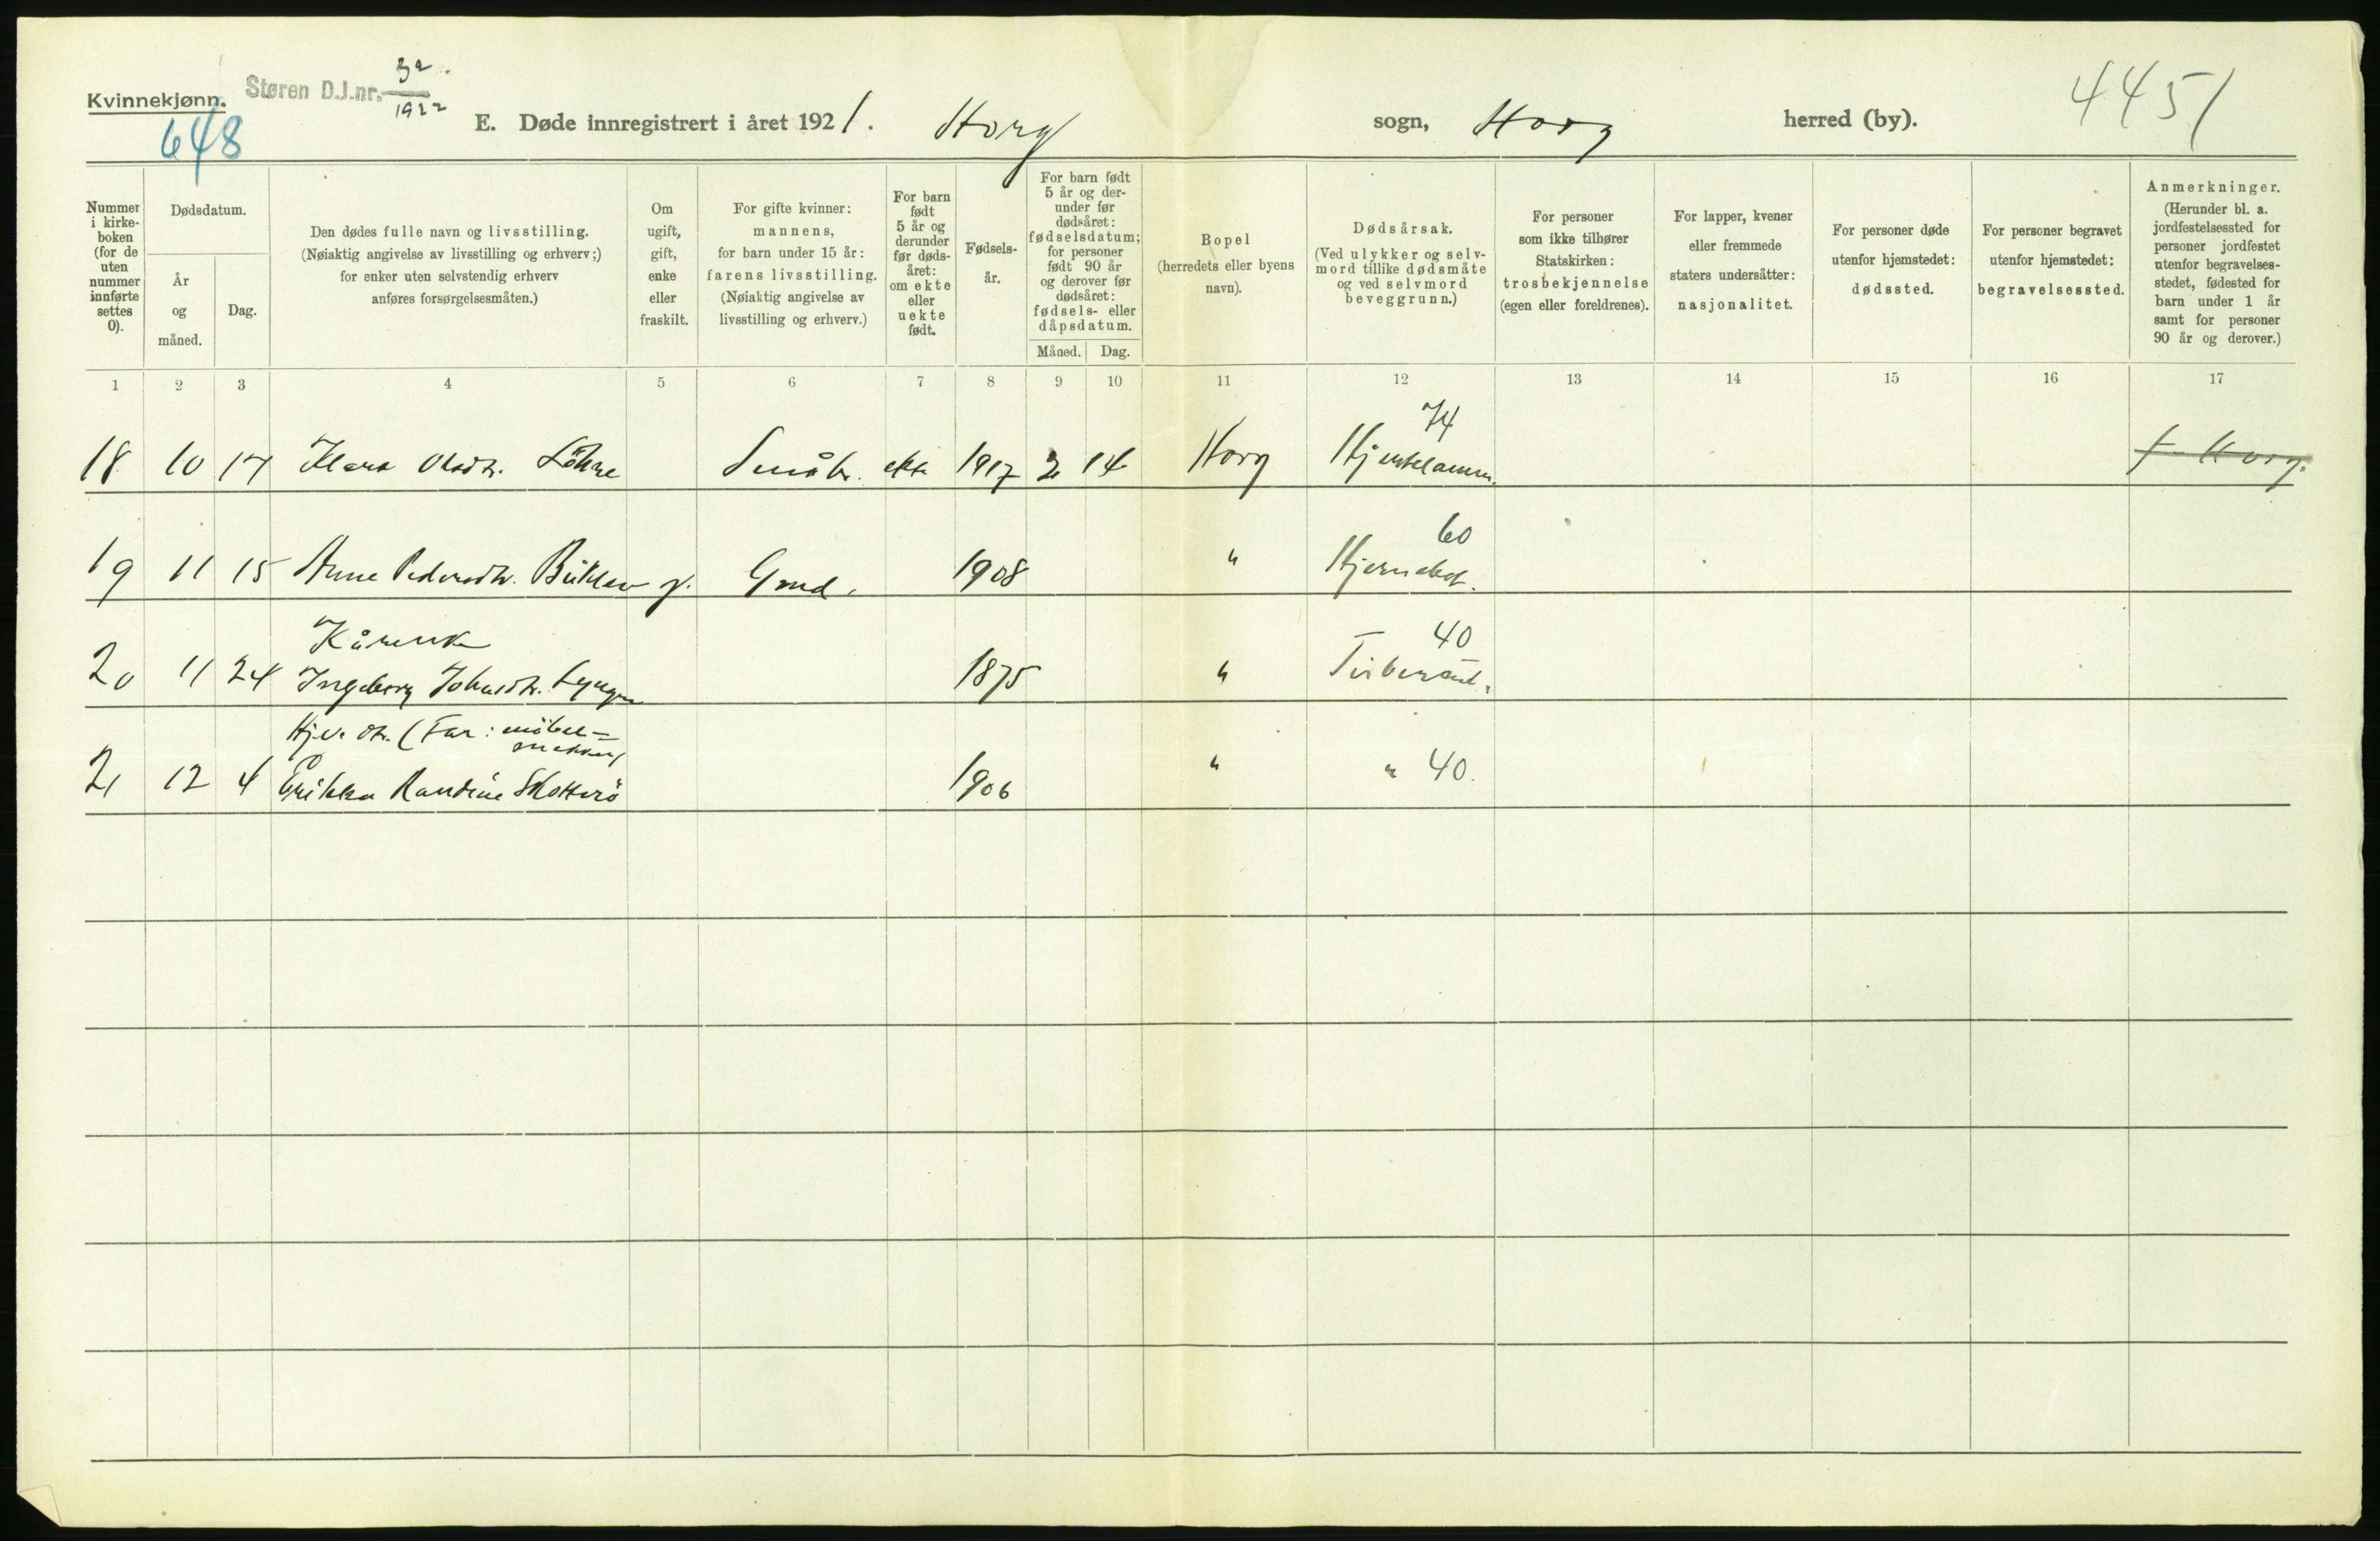 Kvinnekjønn.
Støren D.J.nr. 32
1922
648
E. Døde innregistrert i året 1921. Horg sogn, Horg herred (by).
4451
Nummer i kirke-boken (for de uten nummer innførte settes 0).
Dødsdatum.
År og måned.
Dag.
Den dødes fulle navn og livsstilling.
(Nøiaktig angivelse av livsstilling og erhverv;)
for enker uten selvstendig erhverv
anføres forsørgelsesmåten.)
Om ugift, gift, enke eller fraskilt.
For gifte kvinner:
mannens,
for barn under 15 år:
farens livsstilling.
(Nøiaktig angivelse av
livsstilling og erhverv.)
For barn født 5 år og derunder før døds-året: om ekte eller uekte født.
Fødsels-år.
For barn født 5 år og der-under før dødsåret: fødselsdatum; for personer født 90 år og derover før dødsåret: fødsels- eller dåpsdatum.
Måned. Dag.
Bopel
(herredets eller byens
navn).
Dødsårsak.
(Ved ulykker og selv-
mord tillike dødsmåte
og ved selvmord
beveggrunn.)
For personer
som ikke tilhører
Statskirken:
trosbekjennelse
(egen eller foreldrenes).
For lapper, kvener
eller fremmede
staters undersåtter:
nasjonalitet.
For personer døde
utenfor hjemstedet:
dødssted.
For personer begravet
utenfor hjemstedet:
begravelsessted.
Anmerkninger.
(Herunder bl. a.
jordfestelsessted for
personer jordfestet
utenfor begravelses-
stedet, fødested for
barn under 1 år
samt for personer
90 år og derover.)
1 2 3 4 5 6 7 8 9 10 11 12 13 14 15 16 17
74
18 10 17 Klara Olsdtr. Småbr. ekte 1917 2 14 Horg Hjertelamm. f. Horg.
60
19 11 15 Anne Pedersdtr. g. Gmd. 1908 " Hjernebet.
40
20 11 24 Kårenk Ingeborg Johnsdtr. Lyngen 1875 " Tuberkul.
Hj.v. dtr. (Far: møbel-
snekker)
21 12 4 Erikka Randine 1906 " " 40.